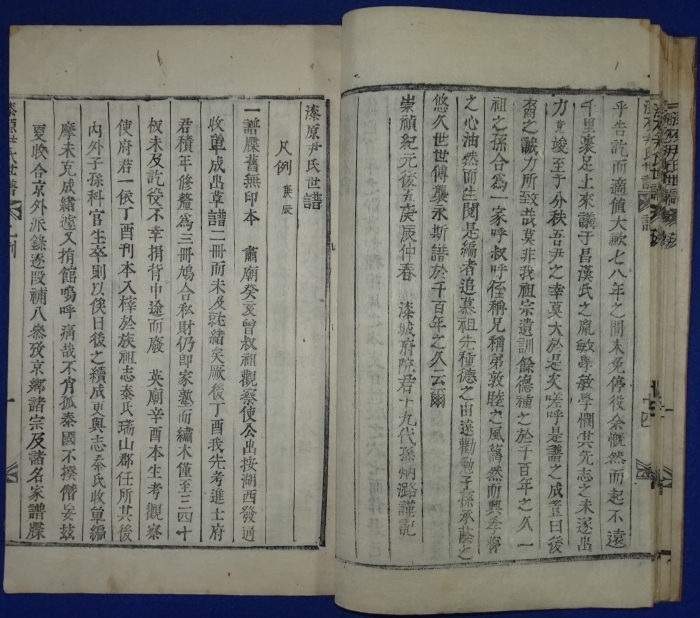 乎告訖而適値大歉七八年之間未免停役余慨然而起不遠
千里裹足上來議于昌漢氏之胤敏學敏學憫其先志之未遂出
力竟竣至于分秩吾尹之幸莫大於是矣嗟呼是譜之成豈曰後
裔之誠力所致哉莫非我祖宗遺訓餘德種之於千百年之久一
祖之孫合爲一家呼叔呼侄稱兄稱弟敦睦之風藹然而興孝悌
之心油然而生閱是編者追慕祖先種德之由遠勸勉子孫承蔭之
悠久世世傳襲永斯譜於千百年之久云爾
崇禎紀元後五庚辰仲春 漆城府院君十九代孫炳潞謹記
漆原尹氏世譜
凡例 庚辰
一譜牒舊無印本 肅廟癸亥曾叔祖觀察使公出按湖西發通
收單成出草譜二冊而未及就緒矣厥後丁酉我先考進士府
君積年修釐爲三冊鳩合私財仍即家塾而繡木僅至三四十
板未及訖役不幸捐背中途而廢 英廟辛酉本生考觀察
使府君一依丁酉刊本入梓於族祖志泰氏瑞山郡任所其後
內外子孫科官生卒則以俟日後之續成更與志泰氏收單編
摩未克成繡遽又捐館嗚呼痛哉不肖孤泰國不揆僭妄玆
夏收合京外派錄逐段補入參攷京鄕諸宗及諸名家譜牒
漆原尹氏世譜 凡例 一